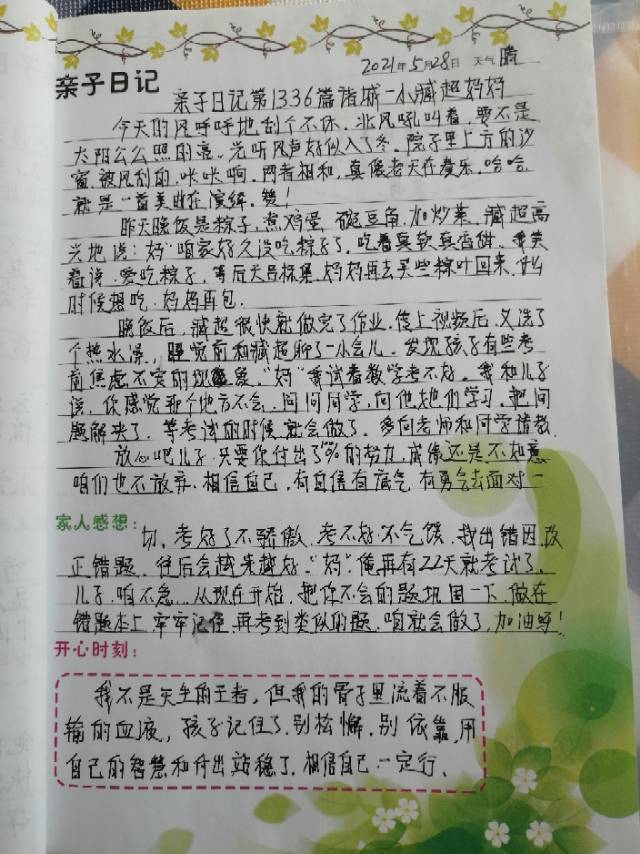 2021年5月28日 天气 晴
亲子日记
亲子日记第1336篇诸城一小臧超妈妈
今天的风呼呼地刮个不休.北风吼叫着,要不是
太阳公公照的亮.光听风声好似入了冬.院子里上方的沙
窗被风刮的.咔咔响.两者相和,真像老天在奏乐.哈哈
就是一首美妙在演绎.赞!
昨天晚饭是粽子,煮鸡蛋 豌豆角.加炒菜.臧超高
兴地说:妈"咱家好久没吃粽子了,吃着真软真香甜.我笑
着说.爱吃粽子,等后天员标集.妈妈再去买些粽叶回来.什么
时候想吃.妈妈再包.
晚饭后.臧超很快就做完了作业.传上视频后.又洗了
个热水澡.睡觉前和臧超聊了一小会儿.发现孩子有些考
前焦虑不定的现象."妈"我试着数学考不好.我和儿子
说,你感觉那个地方不会.问问同学,问他她们学习.把问
题解决了.等考试的时候就会做了.多向老师和同学请教.
放心吧儿子.只要你付出了%的努力.成绩还是不如意
咱们也不放弃.相信自己,有自信有底气 有勇气去面对一
家人感想:
切.考好了不骄傲.考不好不气馁.找出错因.改
正错题.往后会越来越好."妈"俺再有22天就考试了.
儿子.咱不急...从现在开始.把你不会的题巩固一下.做在
错题本上.牢牢记住.再考到类似的题.咱就会做了.加油呀!
开心时刻:
我不是天生的王者,但我的骨子里流着不服
输的血液,孩子记住了.别松懈.别依靠.用
自己的智慧和付出站稳了.相信自己一定行.